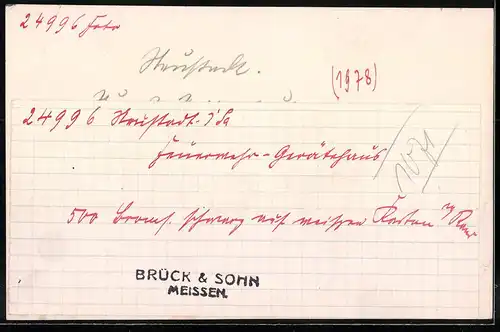 24996 Foto
Neustadt.
(1978)
24996 Neustadt i/Sa
Feuerwehr-Gerätehaus
500 Broms. schwarz auf weissen Karton m/Rand
BRÜCK & SOHN
MEISSEN.